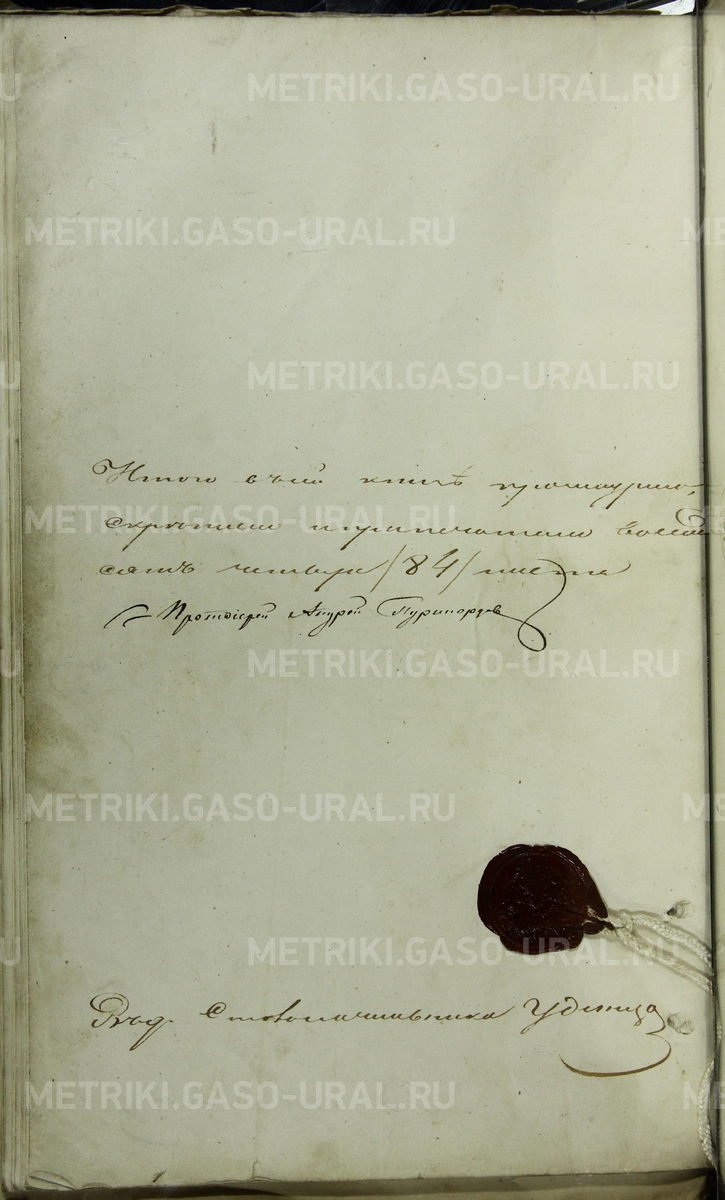 METRIKI.GASO-URAL.RU
METRIKI.GASO-URAL.RU
METRIKI.GASO-URAL.RU
Итого въ сей книгѣ прошнурено,
METRIKI.GASO-URAL.RU
скрѣплено и припечатано восемь
сятъ четыре /84/ листа
Протоіерей Андрей
METRIKI.GASO-URAL.RU
METRIKI.GASO-URAL.RU
METRIKI.GASO-URAL.RU
Столоначальника Удинцо
METRIKI.GASO-URAL.RU